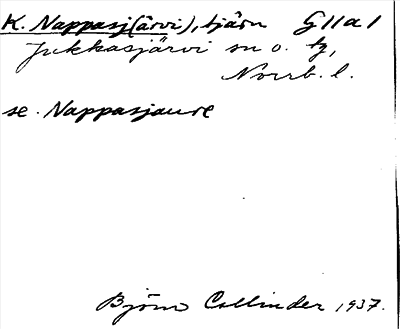 K. Nappasj(ärvi), tjärn G11a1
Jukkasjärvi sn o. tg,
Norrb. l.
se. Nappasjaure
Björn Collinder 1937.